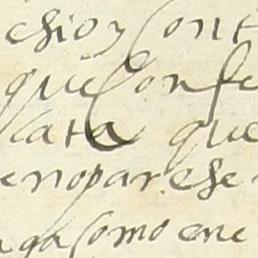 chion cont
que confe
cata que
enoparese
aga como ene